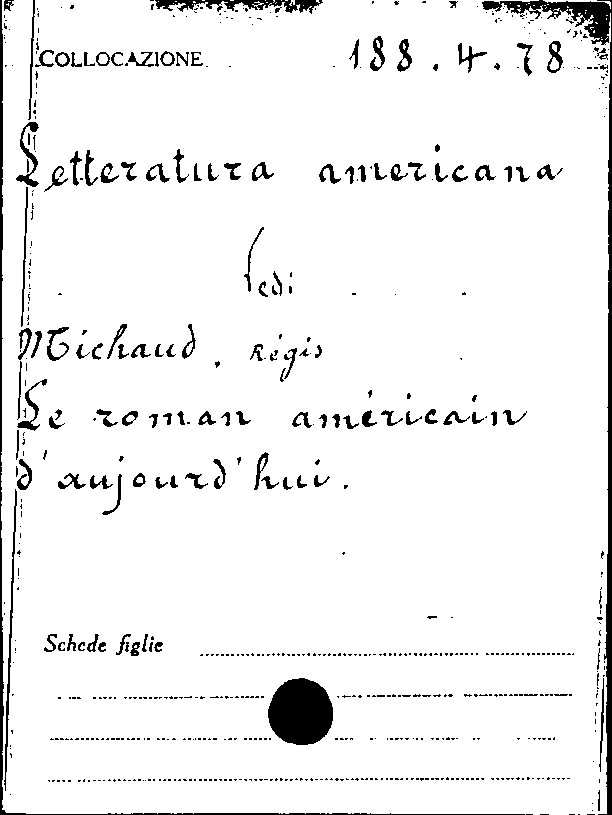 COLLOCAZIONE 188.4.78
Letteratura americana
Vedi
Michaud, Régis
Le roman américain
d'aujourd'hui.
Schede figlie